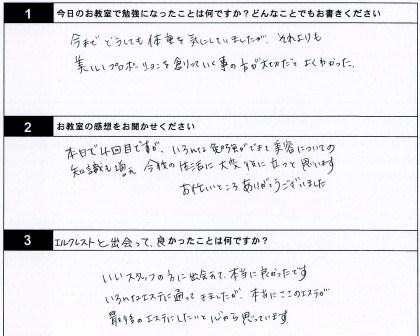 1 今日のお教室で勉強になったことは何ですか？どんなことでもお書きください
今までどうしても体重を気にしていましたが、それよりも
美しいプロポーションを創っていく事の方が大切だとよくわかった。
2 お教室の感想をお聞かせください
本日で4回目ですが、いろんな勉強ができて美容についての
知識も増え 今後の生活に大変役に立つと思います
お忙しいところありがとうございました
3 エルクレストと出会って、良かったことは何ですか？
いいスタッフの方に出会えて、本当に良かったです
いろんなエステに通ってきましたが、本当にここのエステが
最後のエステにしたいと心から思っています